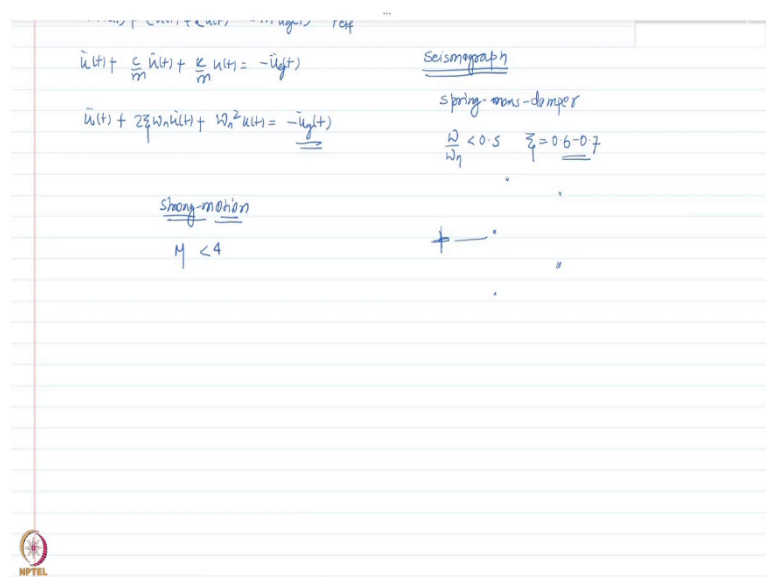 ü(t) + c/m u̇(t) + k/m u(t) = -üg(t)
ü(t) + 2ξωn u̇(t) + ωn² u(t) = -üg(t)
Strong-motion
M < 4
Seismograph
spring-mass-damper
ω/ωn < 0.5 ξ = 0.6-0.7
NPTEL